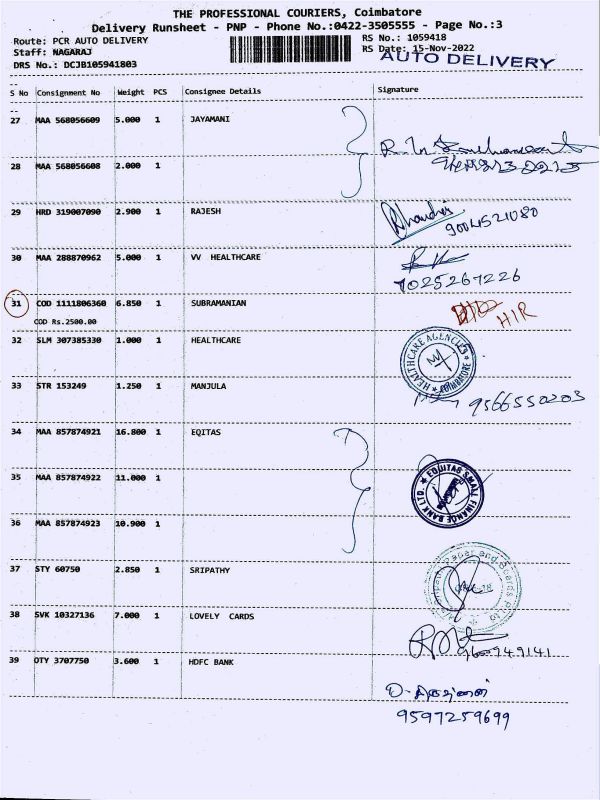 THE PROFESSIONAL COURIERS, Coimbatore
Delivery Runsheet - PNP - Phone No.:0422-3505555 - Page No.:3
Route: PCR AUTO DELIVERY
RS No.: 1059418
Staff: NAGARAJ
RS Date: 15-Nov-2022
DRS No.: DCJB105941803
AUTO DELIVERY
S No Consignment No Weight PCS Consignee Details Signature
27 MAA 568056609 5.000 1 JAYAMANI
28 MAA 568056608 2.000 1
29 HRD 319007090 2.900 1 RAJESH
9004521080
30 MAA 288870962 5.000 1 VV HEALTHCARE
7025267226
31 COD 1111806360 6.850 1 SUBRAMANIAN
COD Rs.2500.00
HIR
32 SLM 307385330 1.000 1 HEALTHCARE
HEALTHCARE AGENCIES
COIMBATORE
33 STR 153249 1.250 1 MANJULA
9566550203
34 MAA 857874921 16.800 1 EQITAS
35 MAA 857874922 11.000 1
EQUITAS SMALL FINANCE BANK LTD.
36 MAA 857874923 10.900 1
37 STY 60750 2.850 1 SRIPATHY
38 SVK 10327136 7.000 1 LOVELY CARDS
39 OTY 3707750 3.600 1 HDFC BANK
9597259699